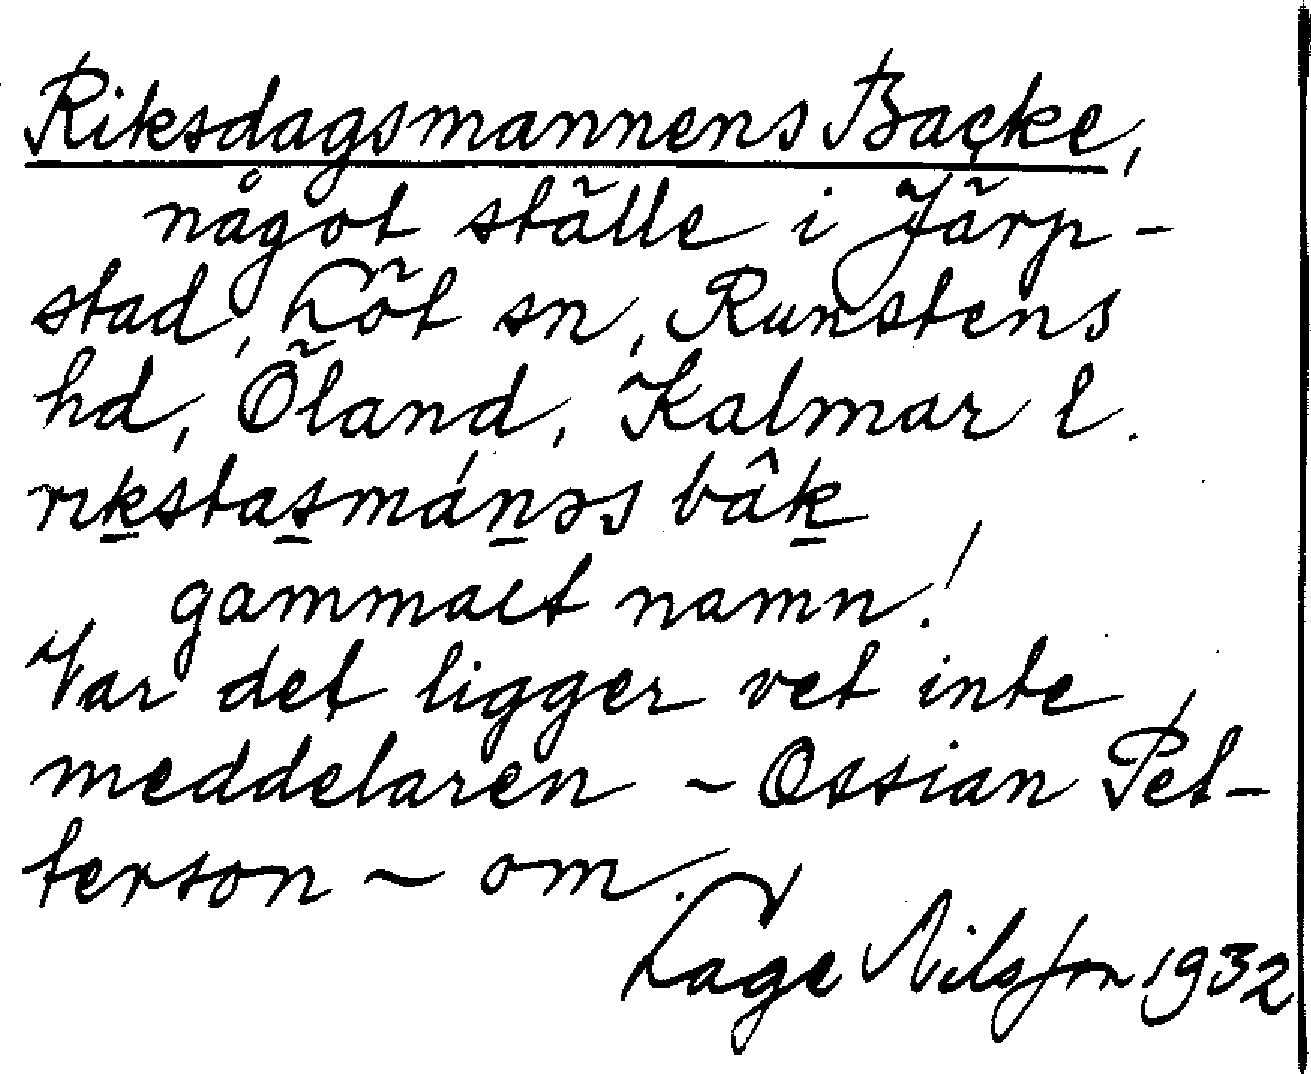 Riksdagsmannens Backe,
något ställe i Järp-
stad, Löt sn, Runstens
hd, Öland, Kalmar l.
rıks̠tas̠mánəs bâk̠
gammalt namn!
Var det ligger vet inte
meddelaren ~ Ossian Pet-
terson ~ om.
Lage Nilsson 1932